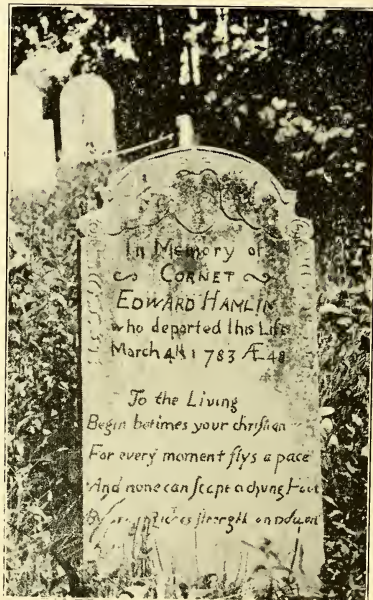 In Memory of
CORNET
EDWARD HAMLIN
who departed this Life
March 4th 1783 Æ 48
To the Living
Begin betimes your christian
For every moment flys a pace
And none can
By strength